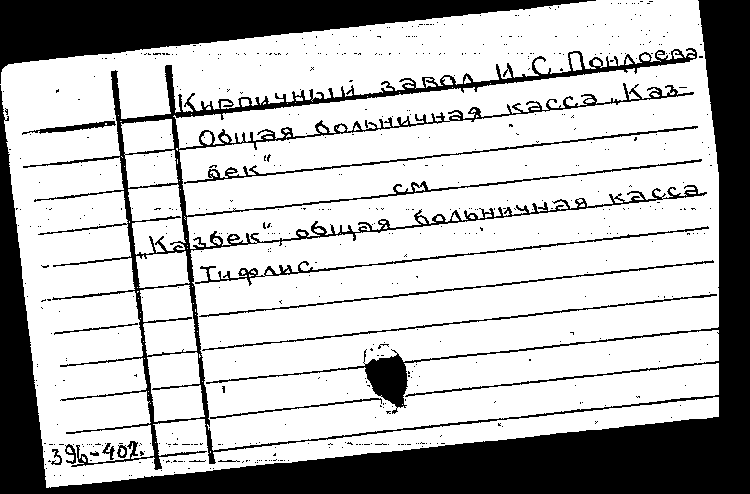 Кирпичный завод И.С. Пондоева
Общая больничная касса „Каз-
бек“
см
„Казбек“, общая больничная касса
Тифлис
396-402.